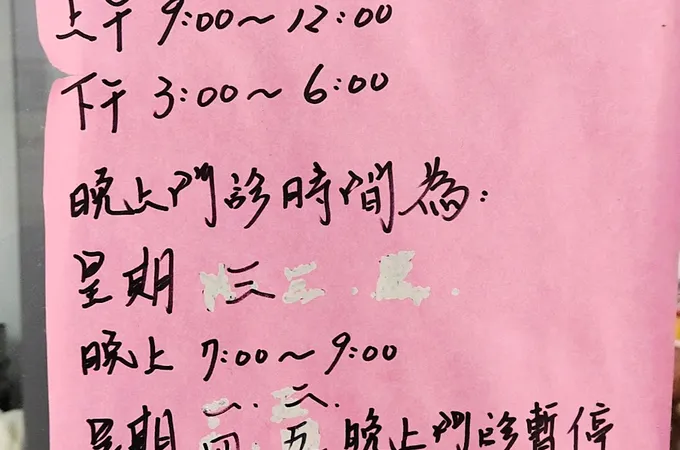 上午 9:00~12:00
下午 3:00~6:00
晚上門診時間為:
星期 三
晚上 7:00~9:00
星期 一.二.四.五 晚上門診暫停